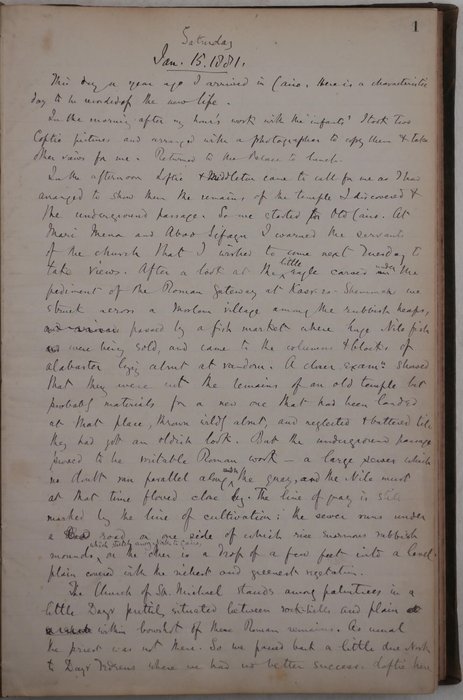 1
Saturday
Jan. 15. 1881.
This day a year ago I arrived in Cairo. Here is a characteristic
day to be recorded of the new life.
In the morning after my hour's work with the 'infants' I took two
Coptic pictures and arranged with a photographer to copy them & take
other views for me. Returned to the Palace to lunch.
In the afternoon Loftie & Middleton came to call for me as I had
arranged to show them the remains of the temple I discovered &
the underground passage. So we started for Old Cairo. At
Mari Mena and Abou Sifayn I warned the servants
of the church that I wished to come next Tuesday to
take views. After a look at the little eagle carved under the
pediment of the Roman Gateway at we
struck across a Moslem village among the rubbish heaps,
passed by a fish market where huge Nile fish
were being sold, and came to the columns & blocks of
alabaster lying about at random. A closer exam: showed
that they were not the remains of an old temple but
probably materials for a new one that had been landed
at that place, thrown wildly about, and neglected & battered till
they had got an oldish look. But the underground passage
proved to be veritable Roman work – a large sewer which
no doubt ran parallel along with the quay, and the Nile must
at that time flowed close by. The line of quay is still
marked by the line of cultivation: the sewer runs under
a road on one side of which rise enormous rubbish
mounds, on the other is a drop of a few feet into a level
plain covered with the richest and greenest vegetation.
The Church of St. Michael stands among palmtrees in a
little Dayr situated between and plain
within bowshot of these Roman remains. As usual
the priest was not there. So we passed back a little due North
to Dayr where we had no better success. Loftie here